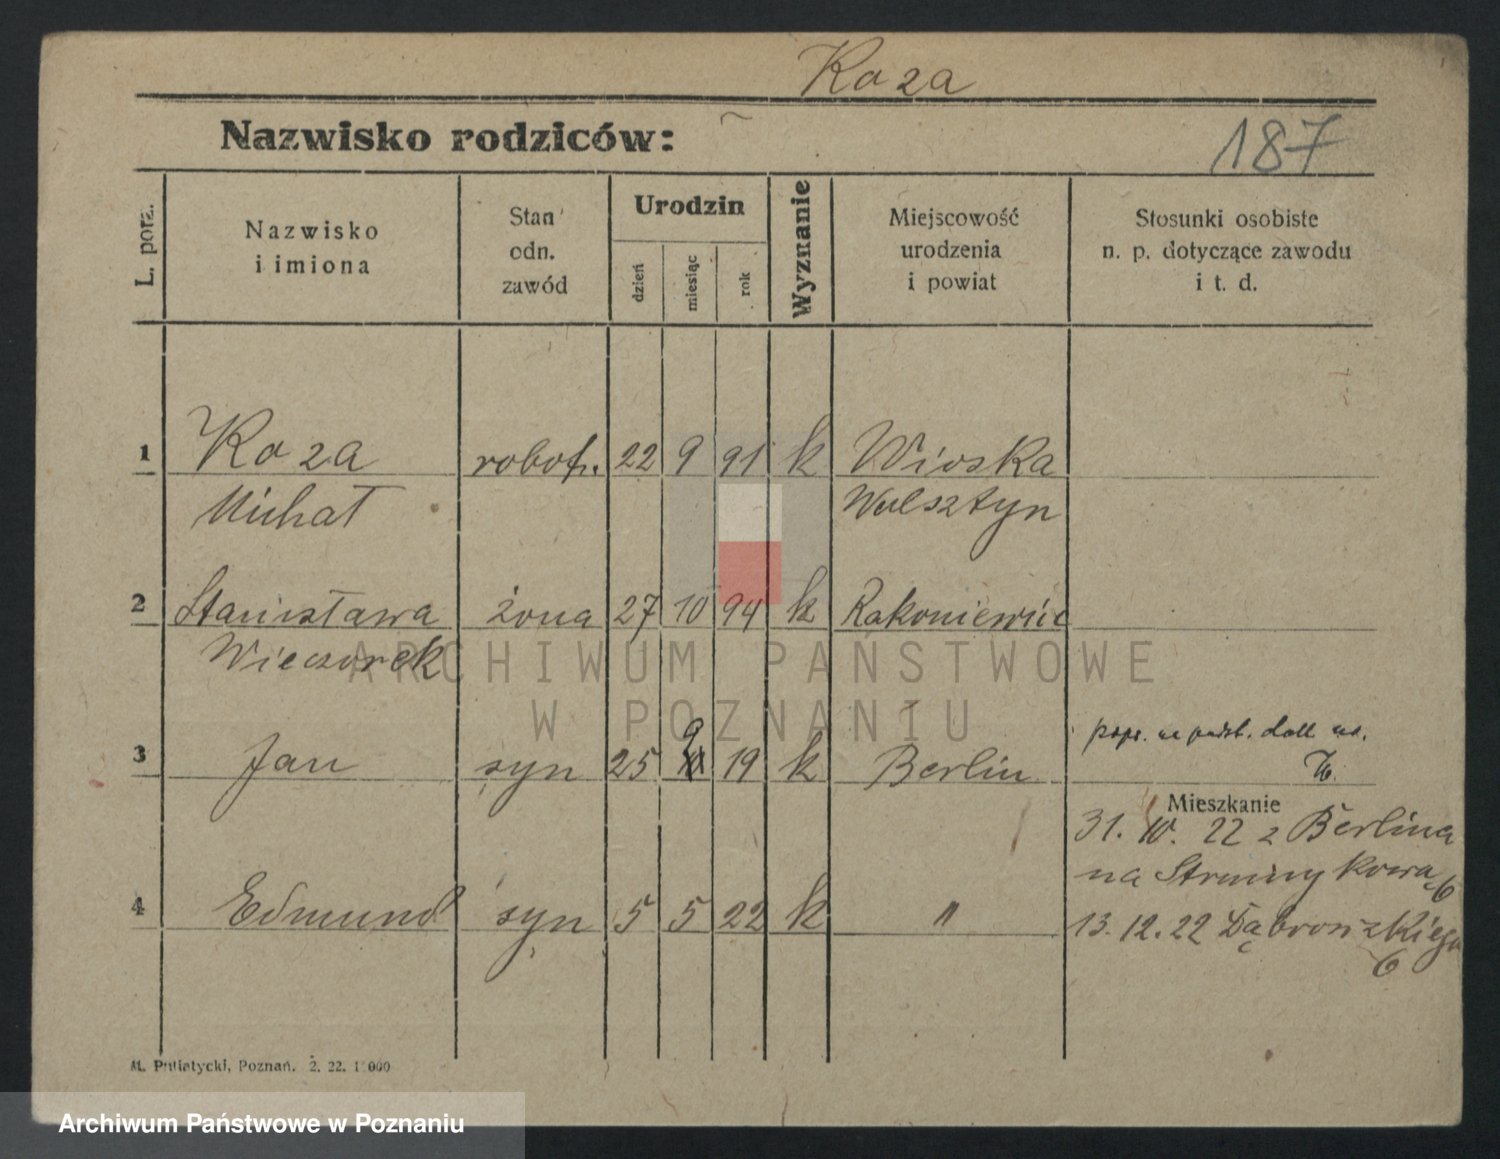 Koza
Nazwisko rodziców:
187
L. porz.
Nazwisko
i imiona
Stan
odn.
zawód
Urodzin
dzień
miesiąc
rok
Wyznanie
Miejscowość
urodzenia
i powiat
Stosunki osobiste
n. p. dotyczące zawodu
i t. d.
1 Koza robotn. 22 9 91 k Wioska
Michał Wolsztyn
2 Stanisława żona 27 10 94 k Rakoniewic
Wieczorek
ARCHIWUM PAŃSTWOWE
W POZNANIU
3 Jan syn 25 9 19 k Berlin
Mieszkanie
31. 10. 22 z Berlina
na Strumykowa 6
4 Edmund syn 5 5 22 k "
13. 12. 22 Dąbrowskiego
6
M. Putiatycki, Poznań. 2. 22. 1 000
Archiwum Państwowe w Poznaniu